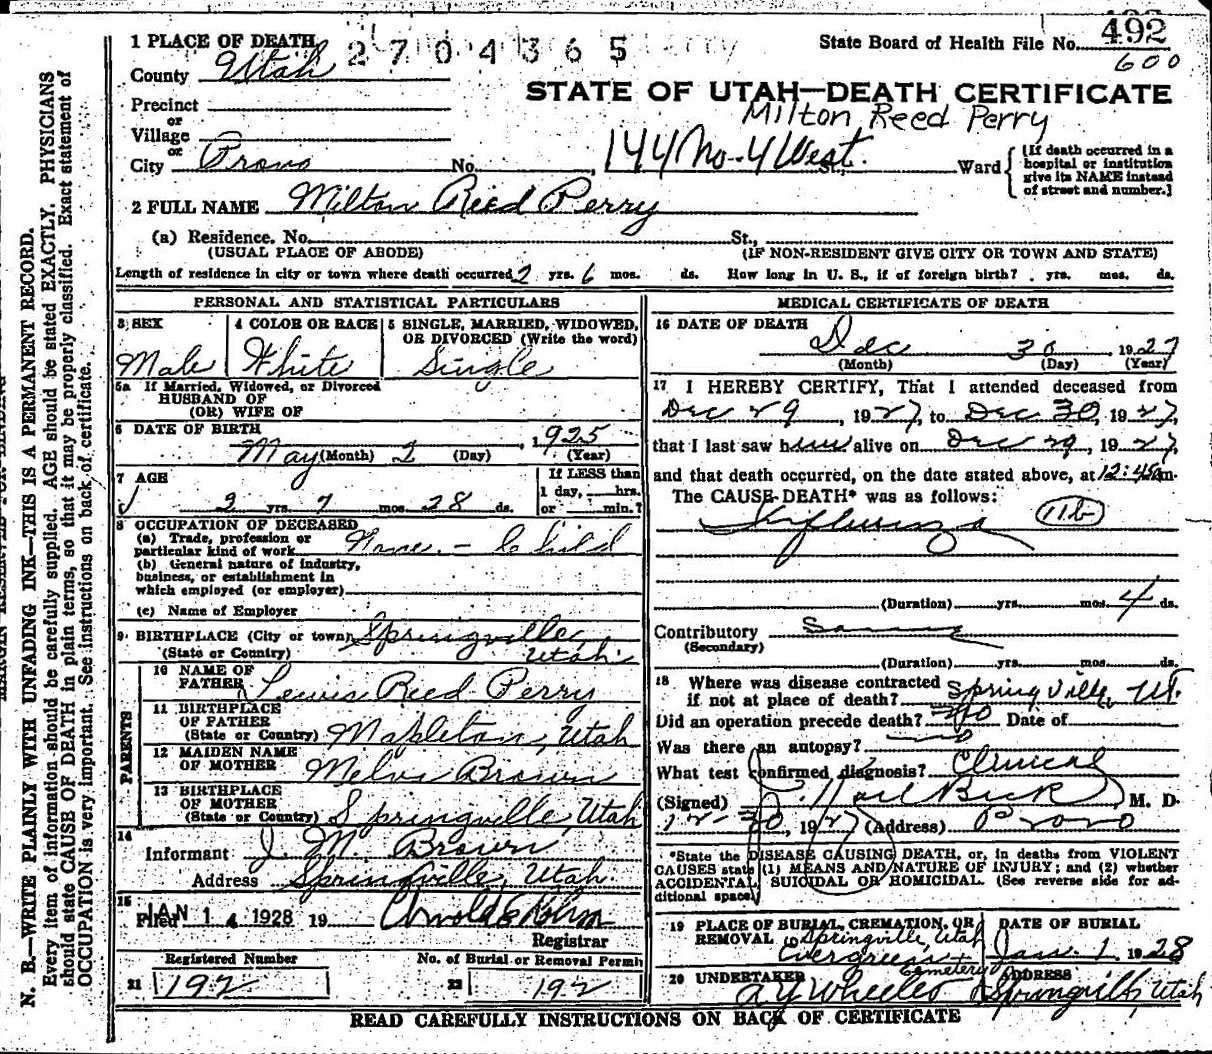 492
1 PLACE OF DEATH 2704365 State Board of Health File No. 492
County Utah 600
STATE OF UTAH—DEATH CERTIFICATE
Precinct
or
Milton Reed Perry
Village
or
City Provo No. 144 No. 4 West. St., Ward
[If death occurred in a
hospital or institution
give its NAME instead
of street and number.]
2 FULL NAME Milton Reed Perry
(a) Residence. No. St.,
(USUAL PLACE OF ABODE) (IF NON-RESIDENT GIVE CITY OR TOWN AND STATE)
Length of residence in city or town where death occurred 2 yrs. 6 mos. ds. How long in U. S., if of foreign birth? yrs. mos. ds.
PERSONAL AND STATISTICAL PARTICULARS
3 SEX
Male
4 COLOR OR RACE
White
5 SINGLE, MARRIED, WIDOWED,
OR DIVORCED (Write the word)
Single
5a If Married, Widowed, or Divorced
HUSBAND OF
(OR) WIFE OF
6 DATE OF BIRTH
May (Month) 2 (Day), 1925 (Year)
7 AGE
2 yrs. 7 mos. 28 ds.
If LESS than
1 day, hrs.
or min.?
8 OCCUPATION OF DECEASED
(a) Trade, profession or
particular kind of work None. - Child
(b) General nature of industry,
business, or establishment in
which employed (or employer)
(c) Name of Employer
9 BIRTHPLACE (City or town) Springville,
(State or Country) Utah
PARENTS
10 NAME OF
FATHER Lewis Reed Perry
11 BIRTHPLACE
OF FATHER
(State or Country) Mapleton, Utah
12 MAIDEN NAME
OF MOTHER Melva Brown
13 BIRTHPLACE
OF MOTHER
(State or Country) Springville, Utah
14
Informant J. M. Brown
Address Springville, Utah.
15
Filed JAN 14 1928 19
Registrar
Registered Number No. of Burial or Removal Permit
21 192 22 192
MEDICAL CERTIFICATE OF DEATH
16 DATE OF DEATH
Dec 30, 1927
(Month) (Day) (Year)
17 I HEREBY CERTIFY, That I attended deceased from
Dec 29, 1927, to Dec 30, 1927,
that I last saw him alive on Dec 29, 1927,
and that death occurred, on the date stated above, at 12:45 am.
The CAUSE DEATH* was as follows:
Influenza 11b
(Duration) yrs. mos. 4 ds.
Contributory Same
(Secondary)
(Duration) yrs. mos. ds.
18 Where was disease contracted
if not at place of death? Springville, Ut.
Did an operation precede death? no Date of
Was there an autopsy? no
What test confirmed diagnosis? Clinical
(Signed) J. Karl Beck M. D.
12-30, 1927 (Address) Provo
*State the DISEASE CAUSING DEATH, or, in deaths from VIOLENT
CAUSES state (1) MEANS AND NATURE OF INJURY; and (2) whether
ACCIDENTAL, SUICIDAL OR HOMICIDAL. (See reverse side for ad-
ditional space)
19 PLACE OF BURIAL, CREMATION, OR
REMOVAL Springville, Utah
Evergreen Cemetery
DATE OF BURIAL
Jan. 1 1928
20 UNDERTAKER
A Y Wheeler
ADDRESS
Springville, Utah
READ CAREFULLY INSTRUCTIONS ON BACK OF CERTIFICATE
N. B.—WRITE PLAINLY WITH UNFADING INK—THIS IS A PERMANENT RECORD.
Every item of information should be carefully supplied. AGE should be stated EXACTLY. PHYSICIANS
should state CAUSE OF DEATH in plain terms, so that it may be properly classified. Exact statement of
OCCUPATION is very important. See instructions on back of certificate.